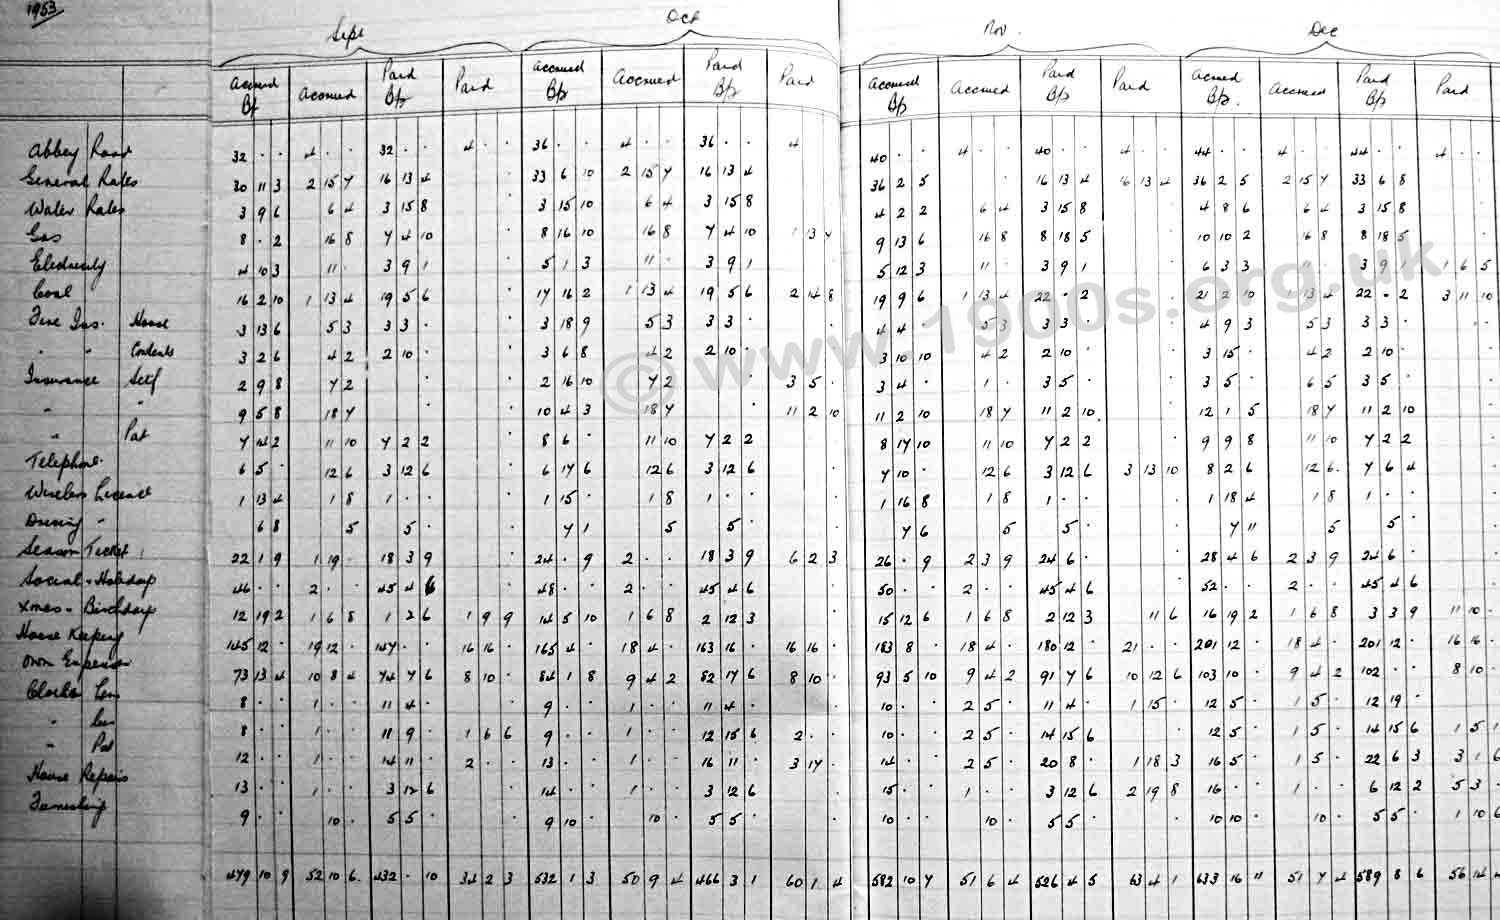 1953
Sept Oct Nov. Dec
Accrued Bf Accrued Paid B/f Paid Accrued B/f Accrued Paid B/f Paid Accrued B/f Accrued Paid B/f Paid Accrued B/f. Accrued Paid B/f Paid
Abbey Road 32 · · 4 · · 32 · · 4 · · 36 · · 4 · · 36 · · 4 40 · · 4 · · 40 · · 4 · · 44 · · 4 · · 44 · · 4 · ·
General Rates 30 11 3 2 15 7 16 13 4 33 6 10 2 15 7 16 13 4 36 2 5 16 13 4 16 13 4 36 2 5 2 15 7 33 6 8
Water Rates 3 9 6 6 4 3 15 8 3 15 10 6 4 3 15 8 4 2 2 6 4 3 15 8 4 8 6 6 4 3 15 8
Gas 8 · 2 16 8 7 4 10 8 16 10 16 8 7 4 10 1 13 7 9 13 6 16 8 8 18 5 10 10 2 16 8 8 18 5
Electricity 4 10 3 11 · 3 9 1 5 1 3 11 · 3 9 1 5 12 3 11 · 3 9 1 6 3 3 11 · 3 9 1 1 6 5
Coal 16 2 10 1 13 4 19 5 6 17 16 2 1 13 4 19 5 6 2 14 8 19 9 6 1 13 4 22 · 2 21 2 10 1 13 4 22 · 2 3 11 10
Fire Ins. House 3 13 6 5 3 3 3 · 3 18 9 5 3 3 3 · 4 4 · 5 3 3 3 · 4 9 3 5 3 3 3 ·
" " Contents 3 2 6 4 2 2 10 · 3 6 8 4 2 2 10 · 3 10 10 4 2 2 10 · 3 15 · 4 2 2 10 ·
Insurance Self 2 9 8 7 2 2 16 10 7 2 3 5 · 3 4 · 1 · 3 5 · 3 5 · 6 5 3 5 ·
" " 9 5 8 18 7 10 4 3 18 7 11 2 10 11 2 10 18 7 11 2 10 12 1 5 18 7 11 2 10
" Pat 7 14 2 11 10 7 2 2 8 6 · 11 10 7 2 2 8 17 10 11 10 7 2 2 9 9 8 11 10 7 2 2
Telephone 6 5 · 12 6 3 12 6 6 17 6 12 6 3 12 6 7 10 · 12 6 3 12 6 3 13 10 8 2 6 12 6 7 6 4
Wireless Licence 1 13 4 1 8 1 · · 1 15 · 1 8 1 · · 1 16 8 1 8 1 · · 1 18 4 1 8 1 · ·
Driving " 6 8 5 5 · 7 1 5 5 · 7 6 5 5 · 7 11 5 5 ·
Season Ticket 22 1 9 1 19 · 18 3 9 24 · 9 2 · · 18 3 9 6 2 3 26 · 9 2 3 9 24 6 · 28 4 6 2 3 9 24 6 ·
Social - Holidays 46 · · 2 · · 45 4 6 48 · · 2 · · 45 4 6 50 · · 2 · · 45 4 6 52 · · 2 · · 45 4 6
Xmas - Birthdays 12 19 2 1 6 8 1 2 6 1 9 9 14 5 10 1 6 8 2 12 3 15 12 6 1 6 8 2 12 3 11 6 16 19 2 1 6 8 3 3 9 11 10 ·
House Keeping 145 12 · 19 12 · 147 · · 16 16 · 165 4 · 18 4 · 163 16 · 16 16 · 183 8 · 18 4 · 180 12 · 21 · · 201 12 · 18 4 · 201 12 · 16 16 ·
Own Expenses 73 13 4 10 8 4 74 7 6 8 10 · 84 1 8 9 4 2 82 17 6 8 10 · 93 5 10 9 4 2 91 7 6 10 12 6 103 10 · 9 4 2 102 · · 8 10 ·
Clothes Len 8 · · 1 · · 11 4 · 9 · · 1 · · 11 4 · 10 · · 2 5 · 11 4 · 1 15 · 12 5 · 1 5 · 12 19 ·
" 8 · · 1 · · 11 9 · 1 6 6 9 · · 1 · · 12 15 6 2 · · 10 · · 2 5 · 14 15 6 12 5 · 1 5 · 14 15 6 1 5 1
" Pat 12 · · 1 · · 14 11 · 2 · · 13 · · 1 · · 16 11 · 3 17 · 14 · · 2 5 · 20 8 · 1 18 3 16 5 · 1 5 · 22 6 3 3 1 6
House Repairs 13 · · 1 · · 3 12 6 14 · · 1 · · 3 12 6 15 · · 1 · · 3 12 6 2 19 8 16 · · 1 · · 6 12 2 5 3 ·
Furnishing 9 · · 10 · 5 5 · 9 10 · 10 · 5 5 · 10 · · 10 · 5 5 · 10 10 · 10 · 5 5 · 1 10 6
479 10 9 52 10 6 432 · 10 34 2 3 532 1 3 50 9 4 466 3 1 60 1 4 582 10 7 51 6 4 526 4 5 63 4 1 633 16 11 51 7 4 589 8 6 56 14
© www.1900s.org.uk